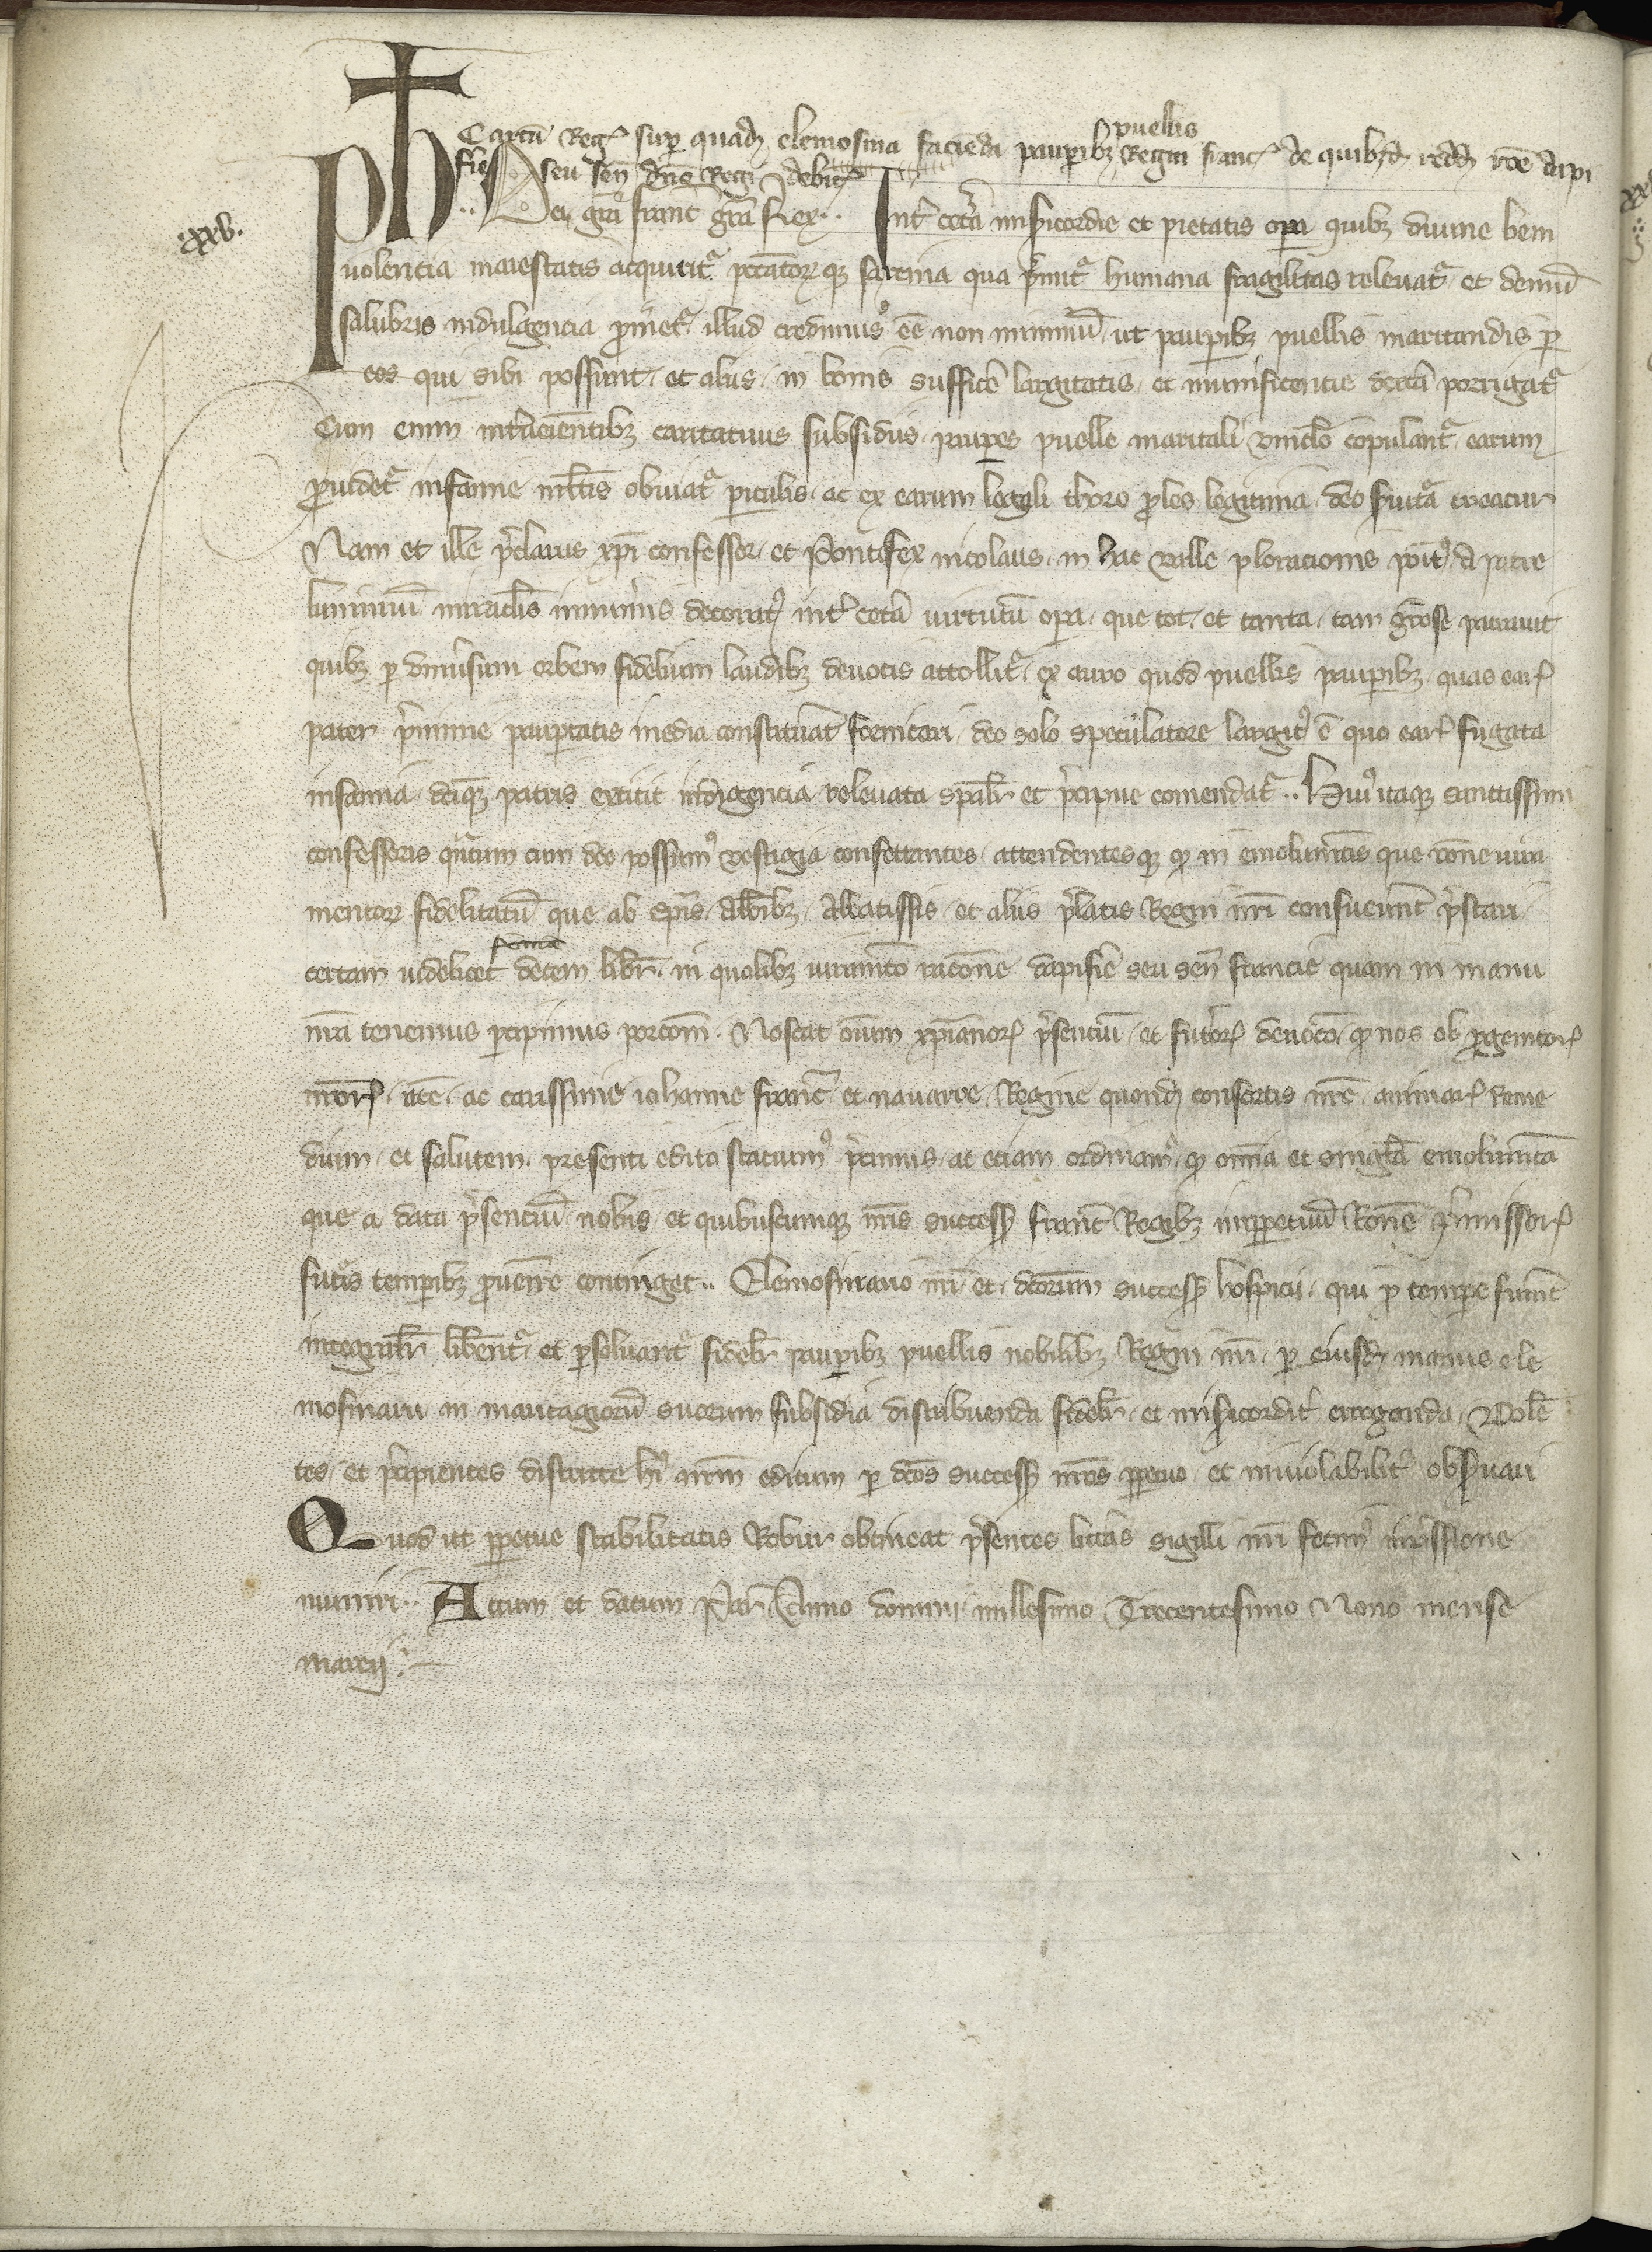 puellis
Carta Reg sup quad elemosina facienda paupibz Regni franc de quibzd redd rone dapi
feri seu sen dno Regi debit
.xxv.
Ph Dei gra franc gra Rex .. Int cetera misericordie et pietatis opera quibz divine beni
volencia maiestatis acquiritr peccatorqz sarcina qua premitr humana fragilitas relevatr et demum
salubris indulgencia promeretr illud credimus ee non minimum ut paupibz puellis maritandis per
eos qui sibi possunt et aliis in bonis sufficere largitatis et munificentie dextera porrigatr
Cum enim intervenientibz caritativis subsidiis paupes puelle maritali vinclo copulantr earum
providetr infamie multis obviatr periculis ac ex earum legali thoro proles legitima deo servitura creatur
Nam et ille preclarus xpi confessor et Pontifex nicolaus in hac valle ploracionis positus a patre
luminum miraclis innumeris decoratus int cetera virtutum opera que tot et tanta tam gratiose patravit
quibz per universum orbem fidelium laudibz devotis attollitr ex auro quod puellis paupibz quas ear
pater premime paupertatis inedia constituerat fornicari deo solo speculatore largitus e quo ear fugata
infamia dictiqz patris extitit indigencia relevata specialr et precipue comendatr .. Huius itaqz sanctissimi
confessoris quantum cum deo possumus vestigia consectantes attendentesqz qd in emolumentis que racione iura
mentor fidelitatum que ab epis Abbibz Abbatissis et aliis prelatis Regni nri consuerunt prestari
soma
certam videlicet decem libr in quolibz iuramento racone dapiferie seu sen francie quam in manu
nra tenemus percipimus porcom Noscat oium xpianor presencium et futuror devoco qd nos ob progenitor
nror ac carissime iohanne franc et navarre Regine quond consortis nre animar reme
dium et salutem presenti edito statuimus precimus ac etiam ordinamus qd omnia et singula emolumenta
que a data presencium nobis et quibuscumqz nris success franc Regibz imperpetuum Rone premissor
futuris temporibz provenire continget .. Elemosinario nri et dictorum success hospicii qui pro tempore fuerint
integralr liberentr et persolvantr fidelr paupibz puellis nobilibz Regni nri per eiusd manus ele
mosinarii in maritagiorum suorum subsidia distribuenda fidelr et misericorditer eroganda Volen
tes et precipientes districte hui nrm editum per dictos success nros perpetuo et inviolabilit observari
Quod ut perpetue stabilitatis Robur obtineat presentes litteras sigilli nri fecimus impressione
muniri .. Actum et datum Par Anno domini millesimo Trecentesimo Nono mense
marcij